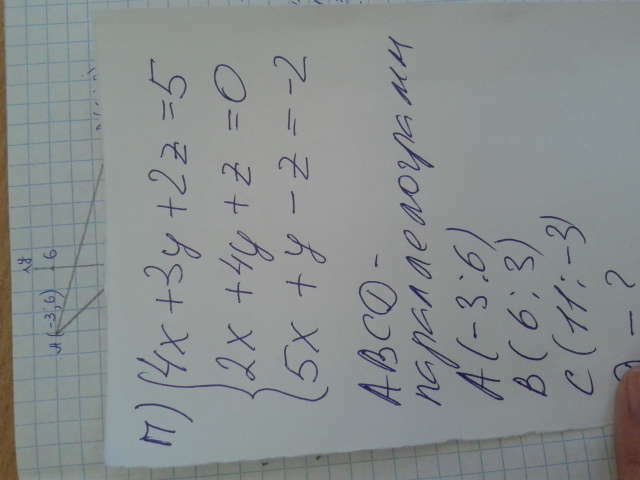 П) 4x + 3y + 2z = 5
2x + 4y + z = 0
5x + y - z = -2
ABCD -
параллелограмм
A(-3; 6)
B(6; 3)
C(11; -3)
D - ?
A(-3; 6)
y
6